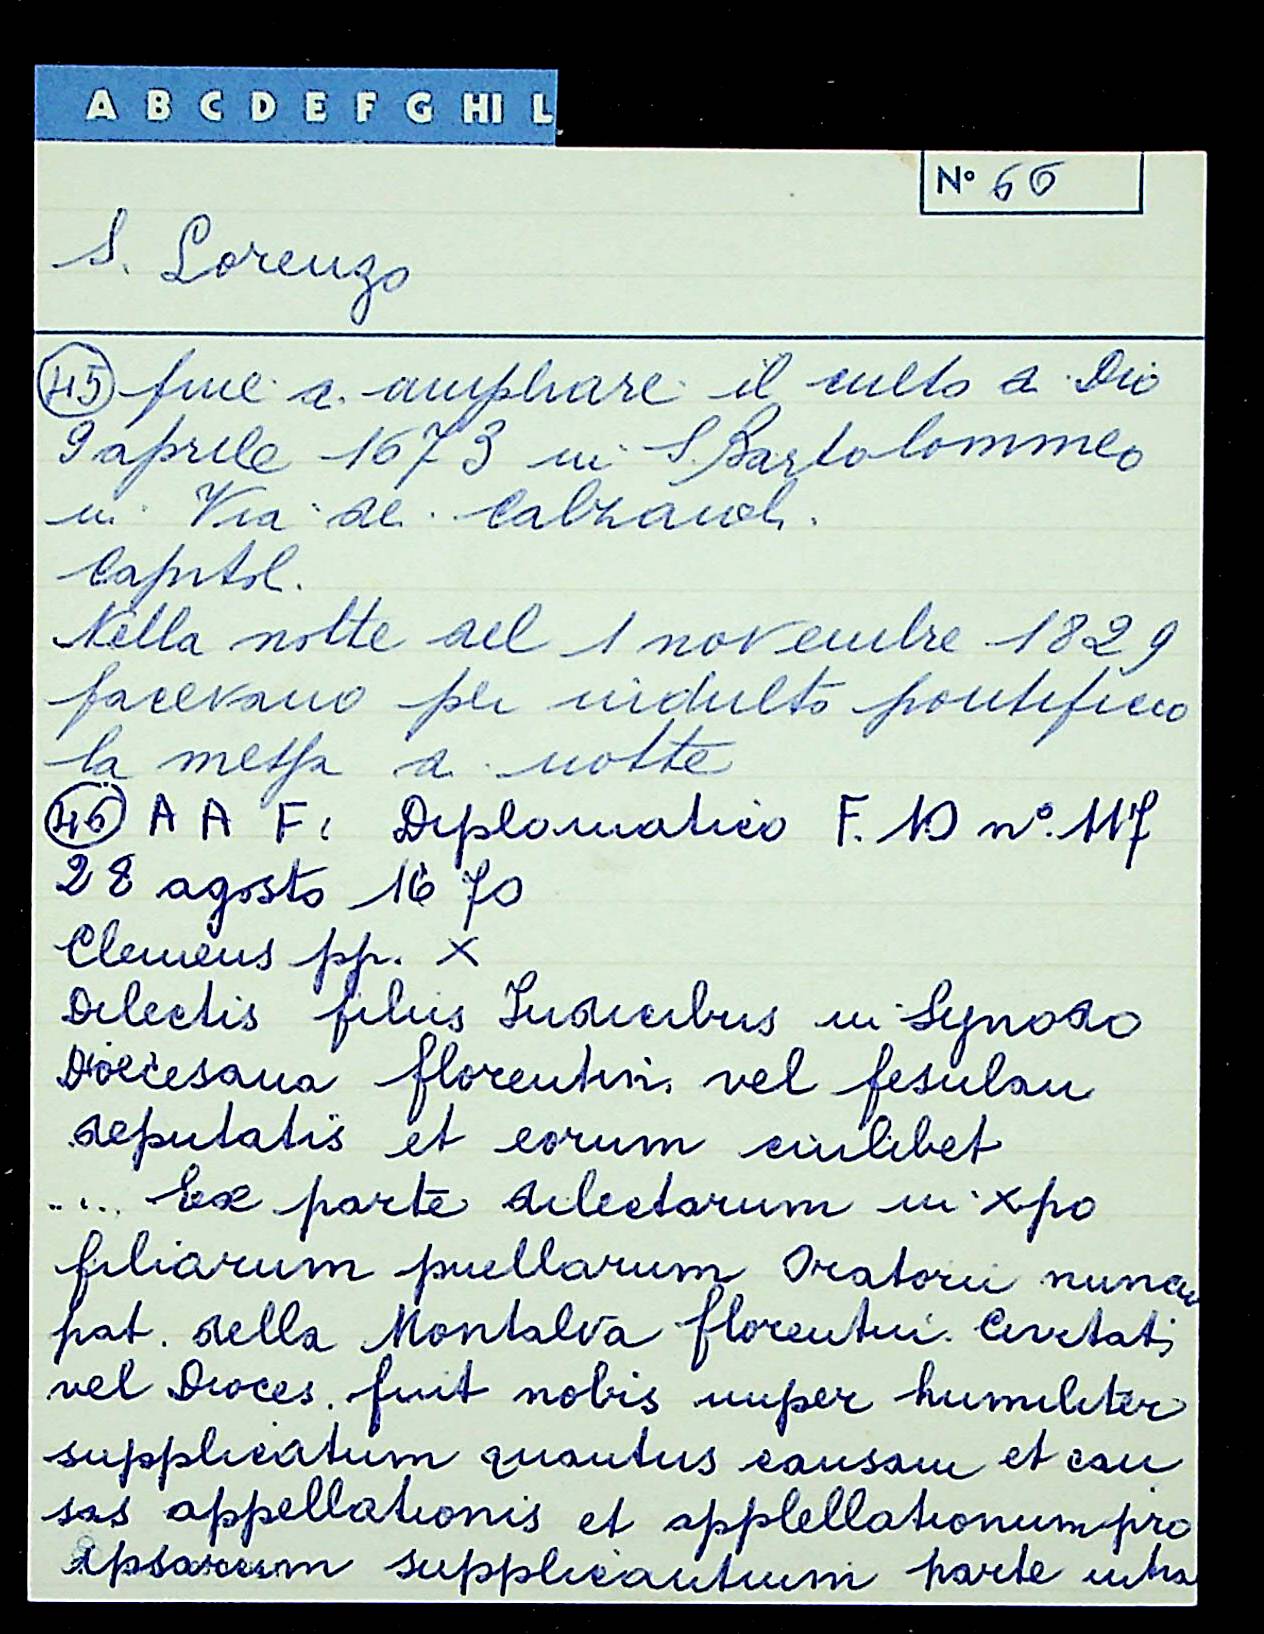 A B C D E F G HI L
N° 66
S. Lorenzo
45 fine di ampliare il culto a Dio
9 aprile 1673 in S. Bartolommeo
in Via de Calzaioli.
Capitol.
Nella notte del 1 novembre 1829
facevano per indulto pontificio
la messa a notte
46 A A F: Diplomatico F. D n°. 117
28 agosto 1670
Clemens pp. X
Dilectis filiis Iudicibus in Synodo
Dioecesana florentin. vel fesulan
deputatis et eorum cuilibet
..... Ex parte dilectarum in xpo
filiarum puellarum Oratorii nuncu
pat. della Montalva florentin. Civitatis
vel Dioces. fuit nobis nuper humiliter
supplicatum quantus causam et cau
sas appellationis et applellationum pro
ipsarum supplicantium parte intra